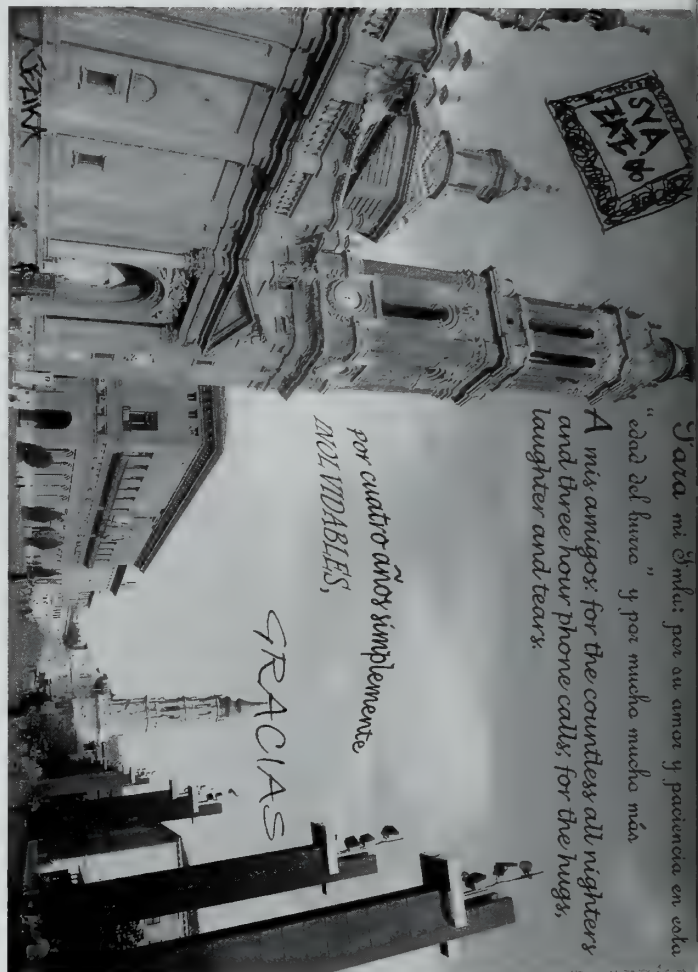 Para mi Fmla: por su amor y paciencia en esta
"edad del burro" y por mucho mucho más
A mis amigos: for the countless all nighters
and three hour phone calls; for the hugs,
laughter and tears.
por cuatro años simplemente
INOLVIDABLES,
GRACIAS
SYA